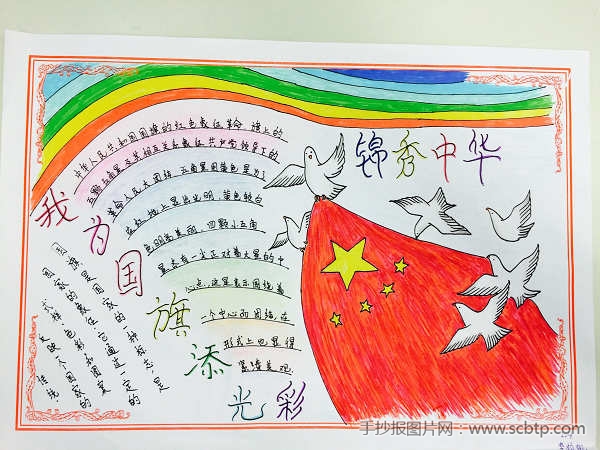 锦秀中华
我为国旗添光彩
中华人民共和国国旗的红色象征革命,旗上的
五颗五角星及其相互关系象征共产党领导下的
革命人民大团结。五角星用黄色是为了
在红地上显出光明,黄色较白
色明亮美丽,四颗小五角
星各有一尖正对着大星的中
心点,这是表示围绕着
一个中心而团结,在
形式上也显得
紧凑美观.
国旗是国家的一种标志,是
国家的象征,它通过一定的
式样、色彩和图案
反映一个国家的
传统.
手抄报图片网:www.scbtp.com